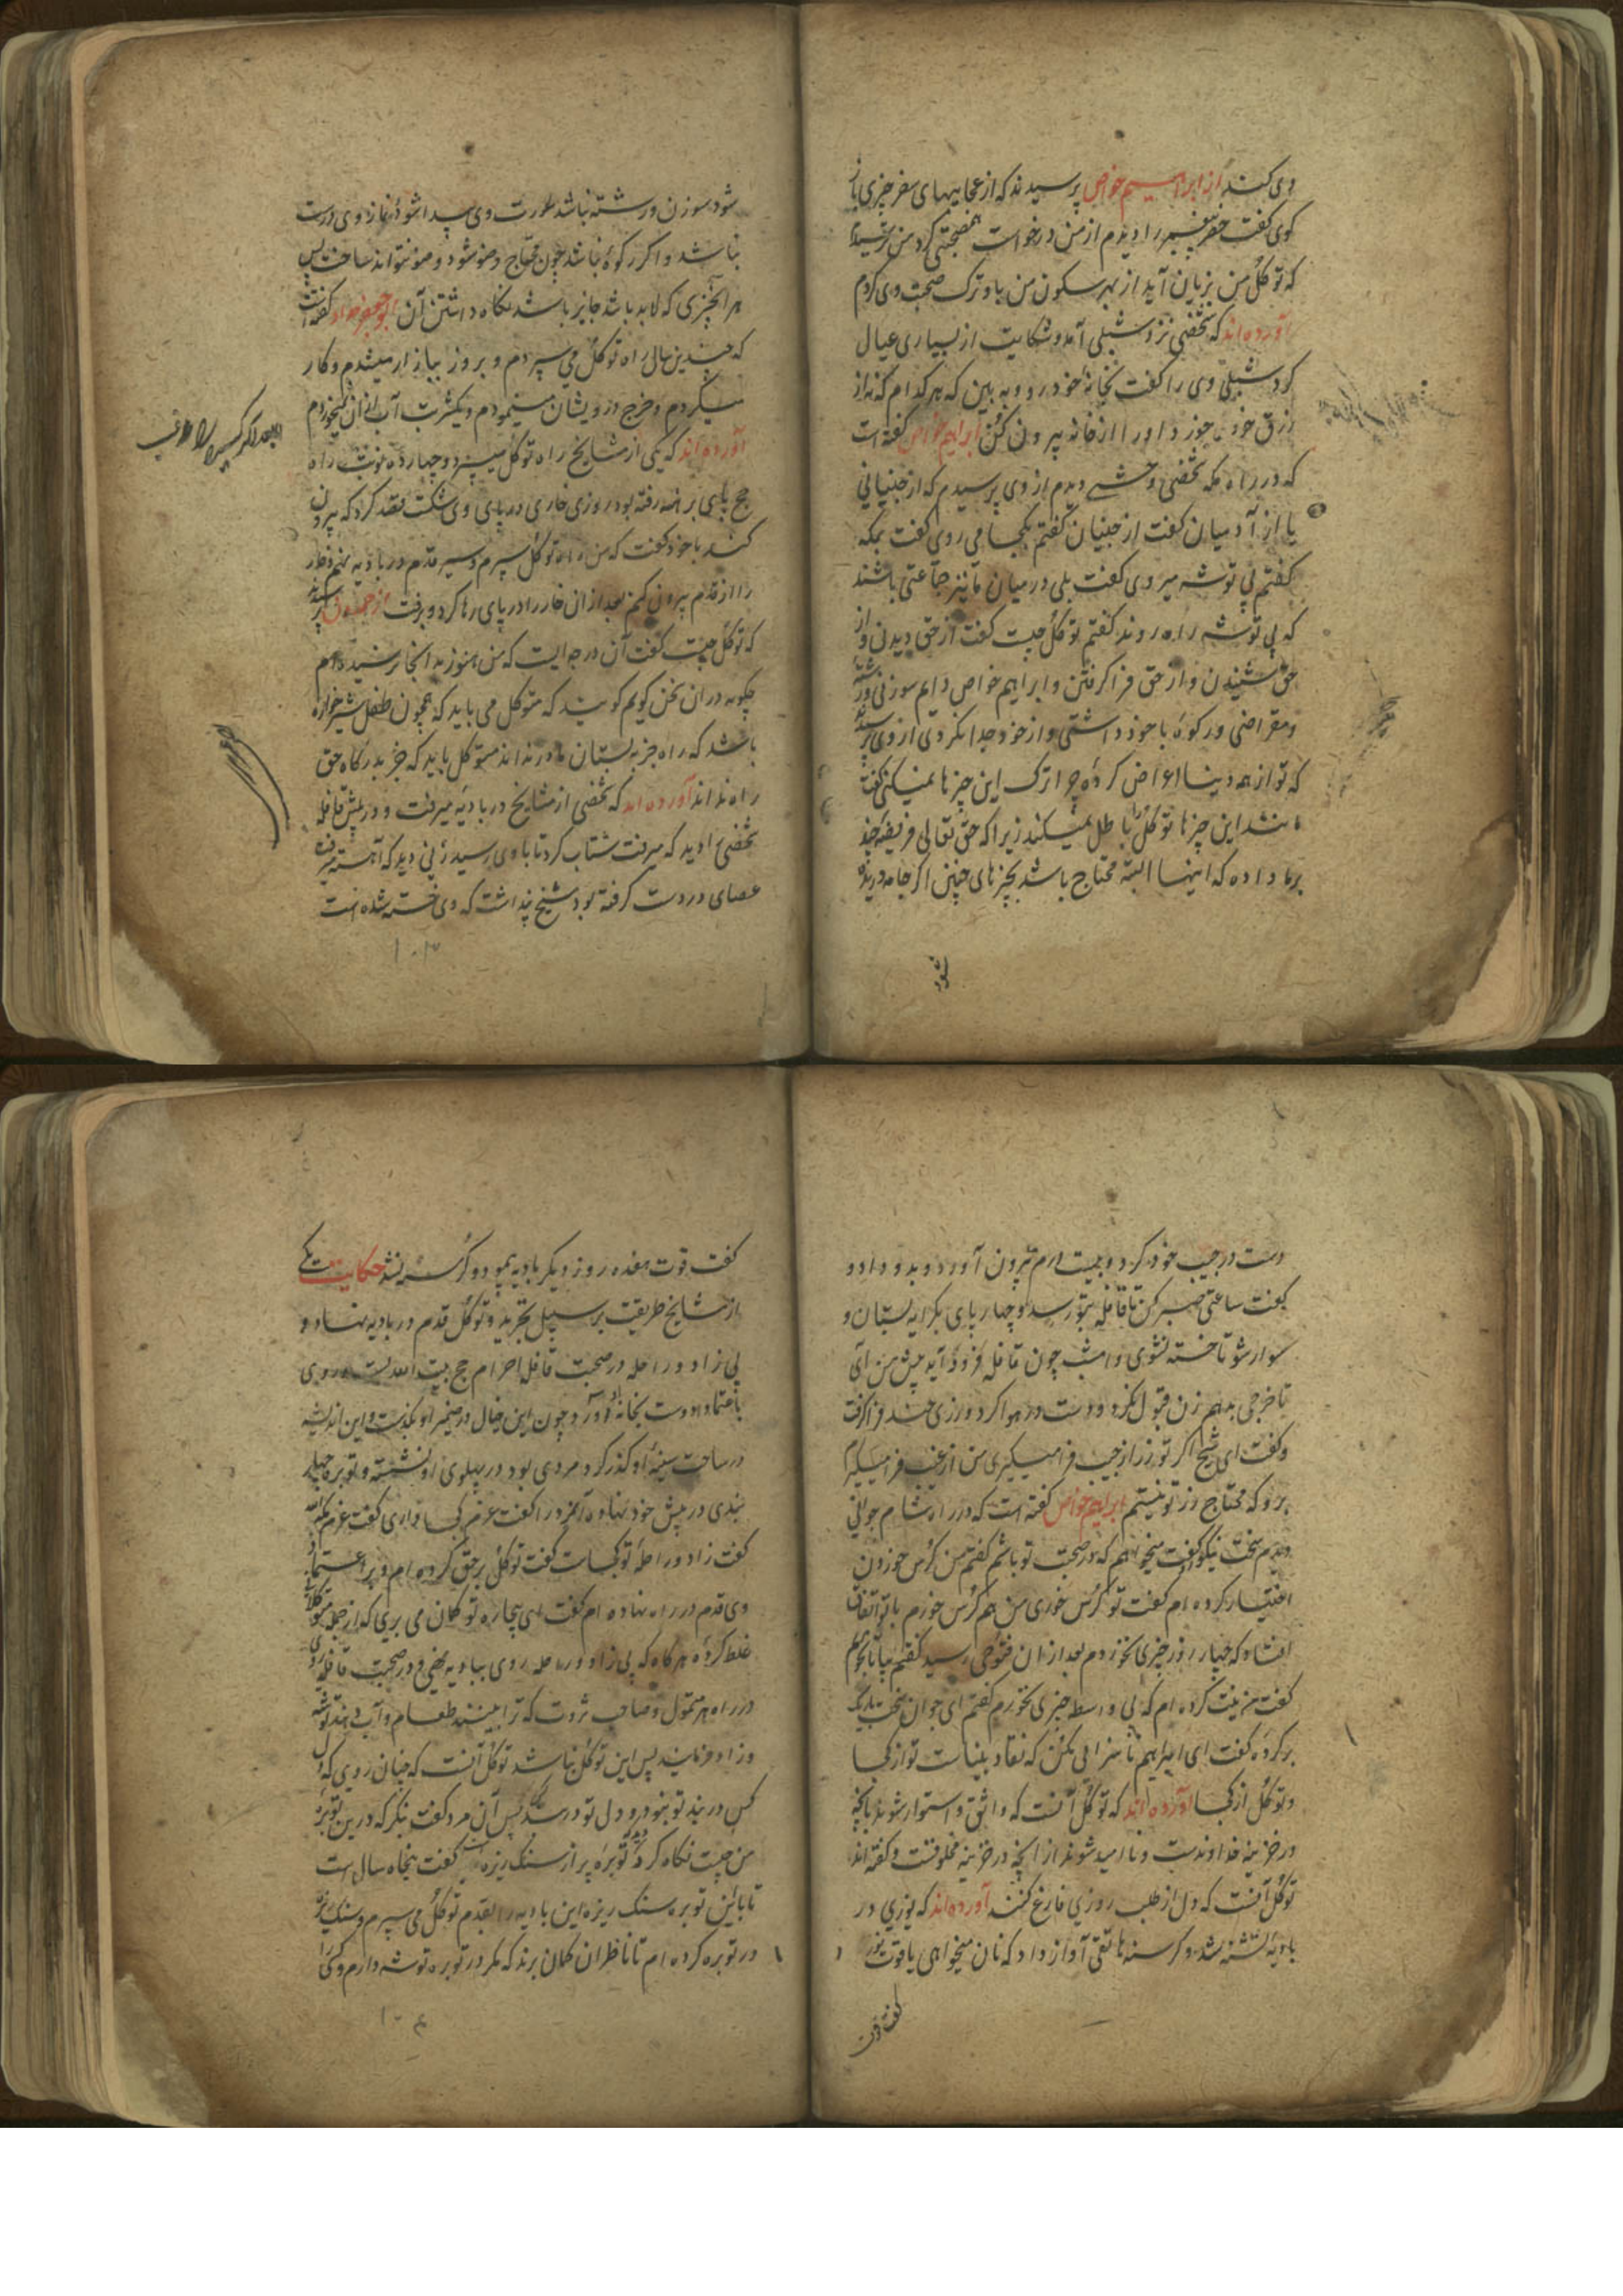 وی کنند از ابراهیم خواص پرسیدند که از عجایبهای سفر چیزی باز
کوی کفت خضر پیغمبر را دیدم از من درخواست همصحبتی کرد من ترسیدم
که توکل من بزیان آید از بهر سکون من باو ترک صحبت وی کردم
آورده‌اند که شخصی نزد شبلی آمد و شکایت از بسیاری عیال
کرد شبلی وی را کفت بخانهٔ خود رو و به بین که هر کدام که نه از
رزق خود میخورد او را از خانه بیرون کن ابراهیم خواص کفته است
که در راه مکه شخصی وحشی دیدم از وی پرسیدم که از جنیانی
یا از آدمیان کفت از جنیان کفتم بکجا می روی کفت بمکه
کفتم بی توشه میروی کفت بلی در میان ما نیز جماعتی باشند
که بی توشه راه روند کفتم توکل چیست کفت از حق دیدن و از
حق شنیدن و از حق فرا کرفتن و ابراهیم خواص دایم سوزنی و رشته
و مقراضی و رکوهٔ با خود داشتی و از خود جدا نکردی از وی پرسیدند
که تو از همه دنیا اعراض کردهٔ چرا ترک این چیزها نمیکنی کفت
مانند این چیزها توکل را باطل نمیکند زیرا که حق تعالی فریضهٔ چند
بر ما داده که اینها البته محتاج باشد بچیزهای چنین اکر جامه دریده
شود
شود سوزن و رشته نباشد عورت وی پیدا شود و نماز وی درست
نباشد و اکر رکوهٔ نباشد چون محتاج وضو شود وضو نتواند ساخت پس
هر آنچیزی که لابد باشد جایز باشد نکاه داشتن آن ابو جعفر حداد کفته است
که چندین سال راه توکل می سپردم و بروز ببازار میشدم و کار
میکردم و خرج درویشان مینمودم و یکشربت آب از آن نمیخوردم
آورده‌اند که یکی از مشایخ راه توکل میسپرد و چهارده نوبت راه
حج بپای برهنه رفته بود روزی خاری در پای وی شکست قصد کرد که بیرون
کند با خود کفت که من راه توکل سپرم و سیر قدم در بادیه نهم و خار
را از قدم بیرون کنم بعد از ان خار را در پای رها کرد و برفت از حمدون پرسیدند
که توکل چیست کفت آن درجه ایست که من هنوز بدانجا نرسیده‌ام
چکونه در ان سخن کویم کویند که متوکل می باید که همچون طفل شیرخواره
باشد که راه جز به پستان مادر نداند متوکل باید که جز بدرکاه حق
راه نداند آورده‌اند که شخصی از مشایخ در بادیه میرفت و در پیش قافله
شخصی را دید که میرفت شتاب کرد تا باوی رسید زنی دید که آهسته میرفت
عصای در دست کرفته بود شیخ پنداشت که وی خسته شده است
۱۰۳
دست در جیب خود کرد و بیست درم بیرون آورد و بدو داد و
کفت ساعتی صبر کن تا قافله بتو رسد و چهار پای بکرایه بستان و
سوار شو تا خسته نشوی و امشب چون قافله فرود آید پیش من آی
تا خرجی بدهم زن قبول نکرد و دست در هوا کرد و زری چند فرا کرفت
و کفت ای شیخ اکر تو زر از جیب فرا میکیری من از غیب فرا میکیرم
برو که محتاج زر تو نیستم ابراهیم خواص کفته است که در راه شام جوانی
دیدم سخت نیکو کفت میخواهم که در صحبت تو باشم کفتم من کرس خوردن
اختیار کرده ام کفت تو کرس خوری من هم کرس خورم با تو اتفاق
افتاد که چهار روز چیزی نخوردم بعد از ان فتوحی رسید کفتم بیا تا بخوریم
کفت من نیت کرده ام که بی واسطه چیزی نخورم کفتم ای جوان سخت باریک
بر کردهٔ کفت ای ابراهیم ناسزایی مکن که نقاد بیناست تو از کجا
و توکل از کجا آورده‌اند که توکل آنست که واثق و استوار شوند بانچه
در خزینه خداوندست و ناامید شوند از انچه در خزینه مخلوقست و کفته اند
توکل آنست که دل از طلب روزی فارغ کنند آورده‌اند که بوزی در
بادیه تشنه شد و کرسنه هاتفی آواز داد که نان میخواهی یا قوت
کفت قوت
کفت قوت هفده روز دیکر بادیه پیمود و کرسنه نشد حکایت یکی
از مشایخ طریقت بر سبیل تجرید و توکل قدم در بادیه نهاد و
بی زاد و راحله در صحبت قافله احرام حج بیت الله بست و روی
باعتماد دوست بخانهٔ او آورد و چون این خیال در ضمیر او بکذشت و این اندیشه
در ساحت سینهٔ او کذر کرد مردی بود در پهلوی او نشسته و توبره چهار
بندی در پیش خود نهاده آنمرد را کفت عزم کجا داری کفت عزم مکه الله
کفت زاد و راحله تو کجاست کفت توکل بر حق کرده ام و بر اعتماد
وی قدم در راه نهاده ام کفت ای بیچاره تو کمان می بری که از جمله متوکلانی
غلط کردهٔ هرکاه که بی زاد و راحله روی ببادیه نهی و در صحبت قافله روی
در راه هر متمول و صاحب ثروت که ترا بینند طعام و آب دهند و توشه
و زاد فرمایند پس این توکل نباشد توکل آنست که چنان روی که دل
کس در بند تو نبود و دل تو در بند کس آن مرد کفت بنکر که درین توبرهٔ
من چیست نکاه کرد توبره پر از سنک ریزه دید کفت پنجاه سال است
تا باین توبره سنک ریزه این بادیه را بقدم توکل می سپرم و سنک ریزه
در توبره کرده ام تا ناظران کمان برند که مکر در توبره توشه دارم و کسی
۱۰۴